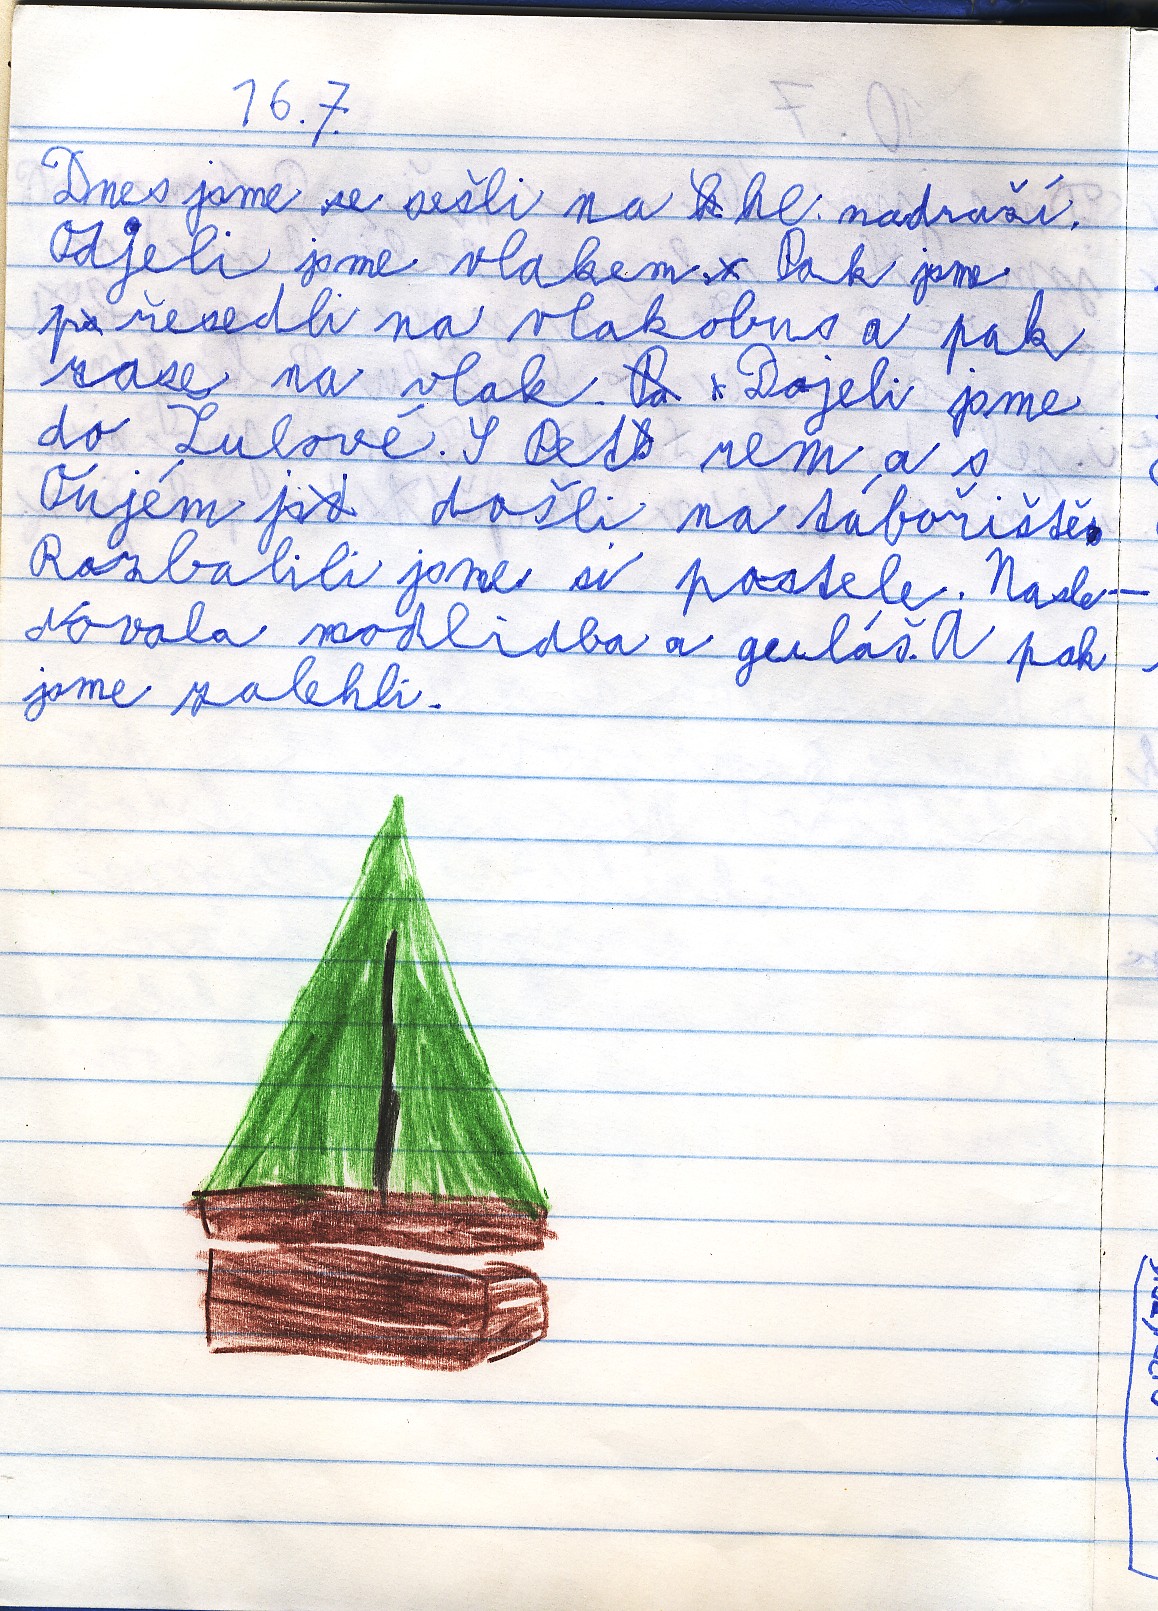 16.7.
Dnes jsme se sešli na hl. nadraží.
Odjeli jsme vlakem. Pak jsme
přesedli na vlakobus a pak
zase na vlak. Dojeli jsme
do Žulové. S Petrem a s
Ďůjém došli na tábořiště.
Rozbalili jsme si postele. Nasle-
dovala modlidba a guláš. A pak
jsme zalehli.